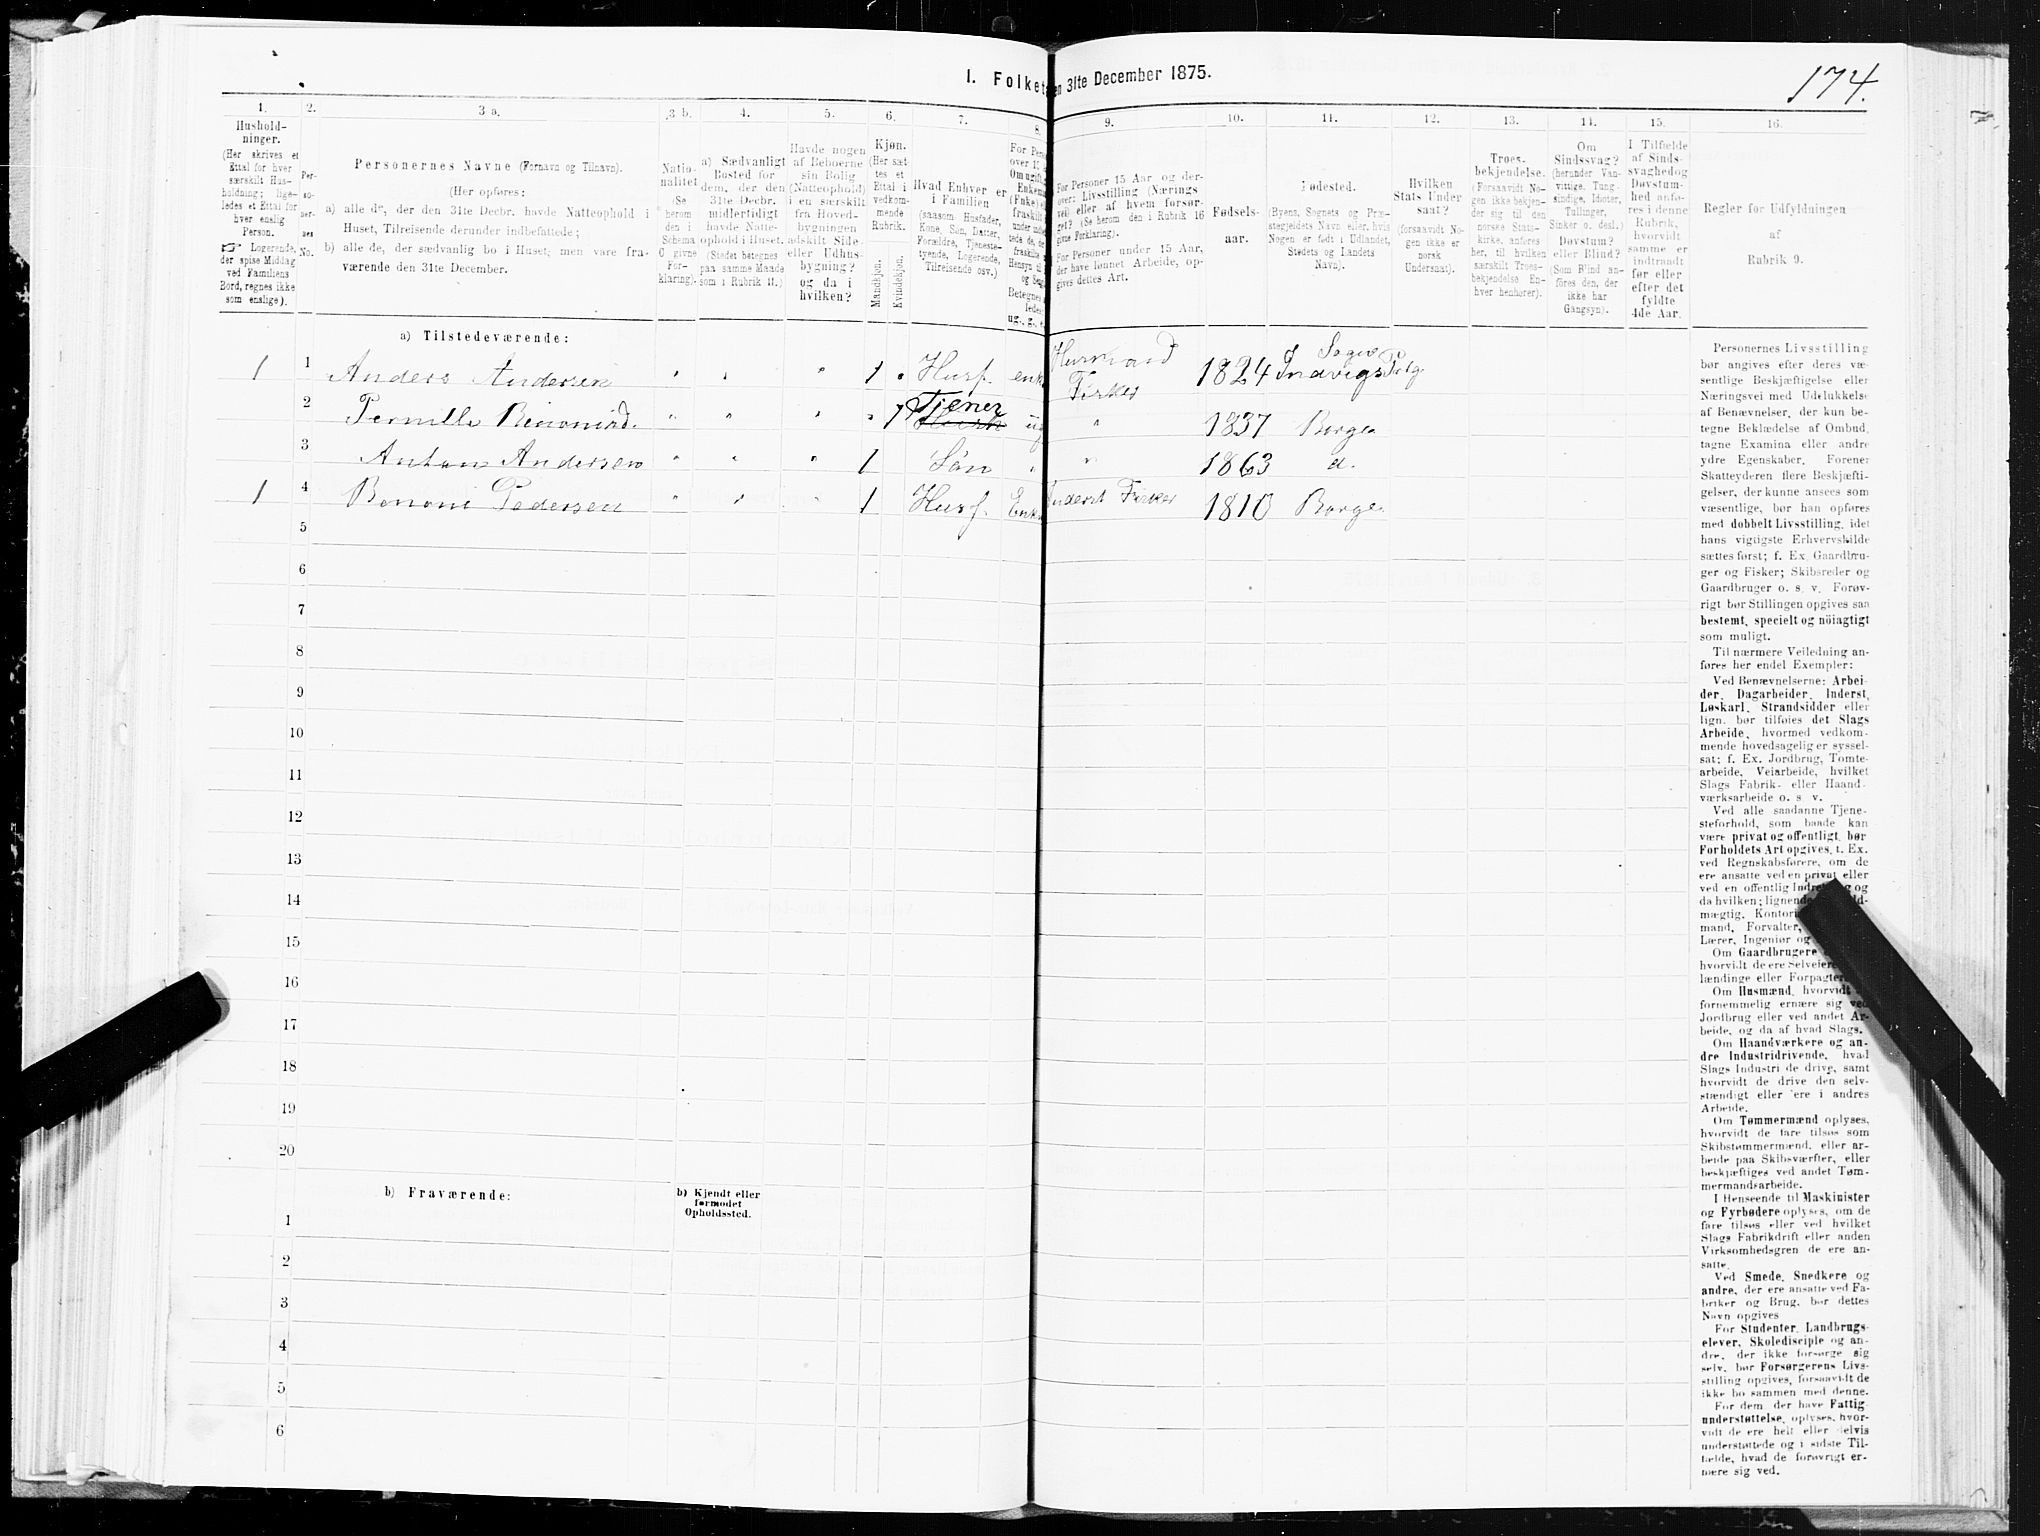 174.
I. Folket
en 31te December 1875.
1. 2. 3 a. 3 b. 4. 5. 6. 7. 8. 9. 10. 11. 12. 13. 14. 15. 16.
Hushold-
ninger.
(Her skrives et
Ettal for hver
særskilt Hus-
holdning; lige-
ledes et Ettal for
hver enslig
Person.
☞ Logerende,
der spise Middag
ved Familiens
Bord, regnes ikke
som enslige).
Per-
so-
ner-
nes
No.
Personernes Navne (Fornavn og Tilnavn).
(Her opføres:
a) alle de, der den 31te Decbr. havde Natteophold i
Huset, Tilreisende derunder indbefattede;
b) alle de, der sædvanlig bo i Huset, men vare fra-
værende den 31te December.
Natio-
nalitet
(Se
herom
den i
Schema
C givne
For-
klaring).
a) Sædvanligt
Bosted for
dem, der den
31te Decbr.
midlertidigt
havde Natte-
ophold i Huset.
(Stedet betegnes
paa samme Maade
som i Rubrik 11.)
Havde nogen
af Beboerne
sin Bolig
(Natteophold)
i en særskilt
fra Hoved-
bygningen
adskilt Side-
eller Udhus-
bygning?
og da i
hvilken?
Kjøn.
(Her sæt-
tes et
Ettal i
vedkom-
mende
Rubrik.
Mandkjøn.
Kvindekjøn.
Hvad Enhver er
i Familien
(saasom Husfader,
Kone, Søn, Datter,
Forældre, Tjeneste-
tyende, Logerende,
Tilreisende osv.)
For Personer 15 Aar og der-
over: Livsstilling (Nærings
vei) eller af hvem forsør-
get? (Se herom den i Rubrik 16
givne Forklaring).
For Personer under 15 Aar,
der have lønnet Arbeide, op-
gives dettes Art.
Fødsels-
aar.
Fødested.
(Byens, Sognets og Præ-
stegjeldets Navn eller, hvis
Nogen er født i Udlandet,
Stedets og Landets
Navn).
Hvilken
Stats Under
saat?
(forsaavidt No-
gen ikke er
norsk
Undersaat).
Troes-
bekjendelse.
(Forsaavidt No-
gen ikke bekjen-
der sig til den
norske Stats-
kirke, anføres
her, til hvilken
særskilt Troes-
bekjendelse En-
hver henhører).
Om
Sindssvag?
(herunder Van-
vittige, Tung-
sindige, Idioter,
Tullinger,
Sinker o. desl.)
Døvstum?
eller Blind?
(Som Blind an-
føres den, der
ikke har
Gangsyn).
I Tilfælde
af Sinds-
svaghed og
Døvstum-
hed anfø-
res i denne
Rubrik,
hvorvidt
samme er
indtraadt
før eller
efter det
fyldte
4de Aar.
Regler for Udfyldningen
af
Rubrik 9.
a) Tilstedeværende:
1 1 Anders Andersen " " " 1 " Husf. enk Husmand Fisker 1824 Indvigs Sogn
2 Pernille " " " " 1 Tjener ug " 1837 Borge
3 Anton Andersen " " " 1 Søn " " 1863 d.
1 4 Benoni Pedersen " " " 1 Husf. Enk Inderst Fisker 1810 Borge
5
6
7
8
9
10
11
12
13
14
15
16
17
18
19
20
b) Fraværende:
b) Kjendt eller
formodet
Opholdssted.
1
2
3
4
5
6
Personernes Livsstilling
bør angives efter deres væ-
sentlige Beskjæftigelse eller
Næringsvei med Udelukkelse
af Benævnelser, der kun be-
tegne Beklædelse af Ombud,
tagne Examina eller andre
ydre Egenskaber. Forener
Skatteyderen flere Beskjæfti-
gelser, der kunne ansees som
væsentlige, bør han opføres
med dobbelt Livsstilling, idet
hans vigtigste Erhvervskilde
sættes først; f. Ex. Gaardbru-
ger og Fisker; Skibsreder og
Gaardbruger o. s. v. Forøv-
rigt bør Stillingen opgives saa
bestemt, specielt og nöiagtigt
som muligt.
Til nærmere Veiledning an-
føres her endel Exempler:
Ved Benævnelserne: Arbei-
der, Dagarbeider, Inderst,
Løskarl, Strandsidder eller
lign. bør tilføies det Slags
Arbeide, hvormed vedkom-
mende hovedsagelig er syssel-
sat; f. Ex. Jordbrug, Tomte-
arbeide, Veiarbeide, hvilket
Slags Fabrik- eller Haand-
værksarbeide o. s. v.
Ved alle saadanne Tjene-
steforhold, som baade kan
være privat og offentligt, bør
Forholdets Art opgives, t. Ex.
ved Regnskabsførere, om de
ere ansatte ved en privat eller
ved en offentlig
da hvilken; lignende
mægtig, Kontori
mand, Forvalter,
Lærer, Ingeniør og
Om Gaardbrugere
hvorvidt de ere Selveiere
lændinge eller Forpagtere
Om Husmænd, hvorvidt
fornemmelig ernære sig ved
Jordbrug eller ved andet Ar-
beide, og da af hvad Slags.
Om Haandværkere og an-
dre Industridrivende, hvad
Slags Industri de drive, samt
hvorvidt de drive den selv-
stændigt eller ere i andres
Arbeide.
Om Tømmermænd oplyses,
hvorvidt de fare tilsøs som
Skibstømmermænd, eller ar-
beide paa Skibsværfter, eller
beskjæftiges ved andet Tøm-
mermandsarbeide.
I Henseende til Maskinister
og Fyrbødere oplyses, om de
fare tilsøs eller ved hvilket
Slags Fabrikdrift eller anden
Virksomhedsgren de ere an-
satte.
Ved Smede, Snedkere og
andre, der ere ansatte ved Fa-
briker og Brug, bør dettes
Navn opgives
For Studenter, Landbrugs-
elever, Skoledisciple og an-
dre, der ikke forsørge sig
selv, bør Forsørgerens Livs-
stilling opgives, forsaavidt de
ikke bo sammen med denne.
For dem, der have Fattig-
understøttelse, oplyses, hvor-
vidt de ere helt eller delvis
understøttede og i sidste Til-
fælde, hvad de forøvrigt er-
nære sig ved.